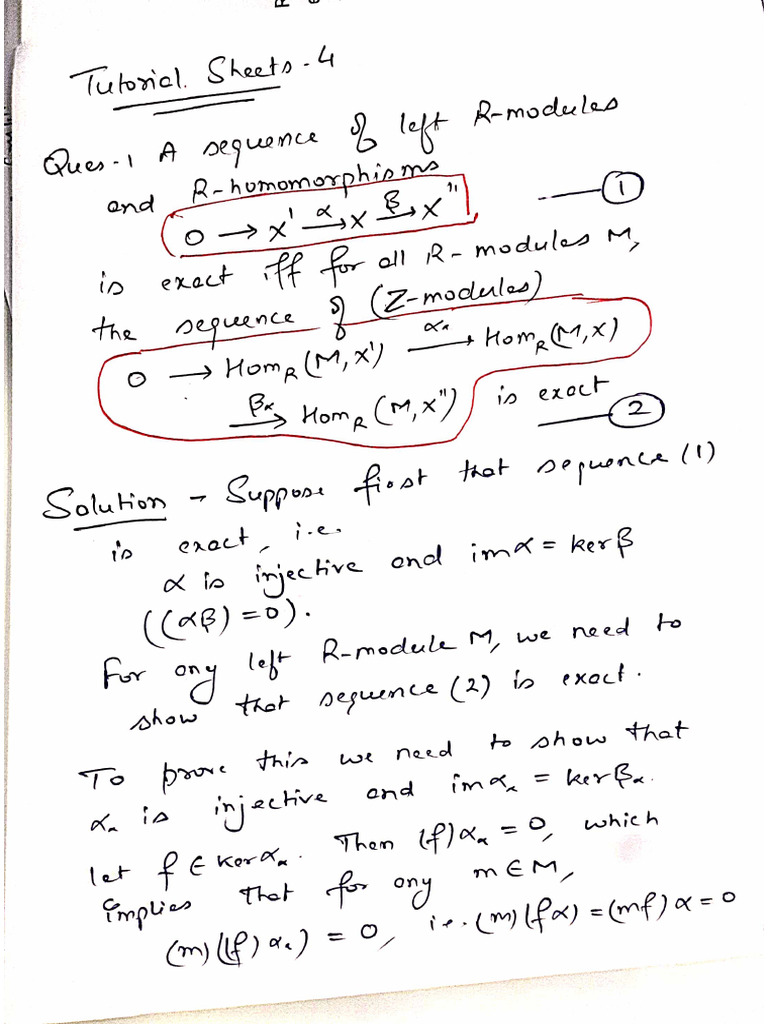 Tutorial Sheets-4
Ques-1 A sequence of left R-modules
and R-homomorphisms
0 → X' α→ X β→ X'' — ①
is exact iff for all R-modules M,
the sequence of (Z-modules)
0 → Hom_R(M,X') α*→ Hom_R(M,X)
β*→ Hom_R(M,X'') is exact — ②
Solution - Suppose first that sequence (1)
is exact, i.e.
α is injective and im α = ker β
((αβ) = 0).
For any left R-module M, we need to
show that sequence (2) is exact.
To prove this we need to show that
α* is injective and im α* = ker β*.
let f ∈ ker α*. Then (f)α* = 0, which
implies that for any m ∈ M,
(m)((f)α*) = 0, i.e. (m)(fα) = (mf)α = 0